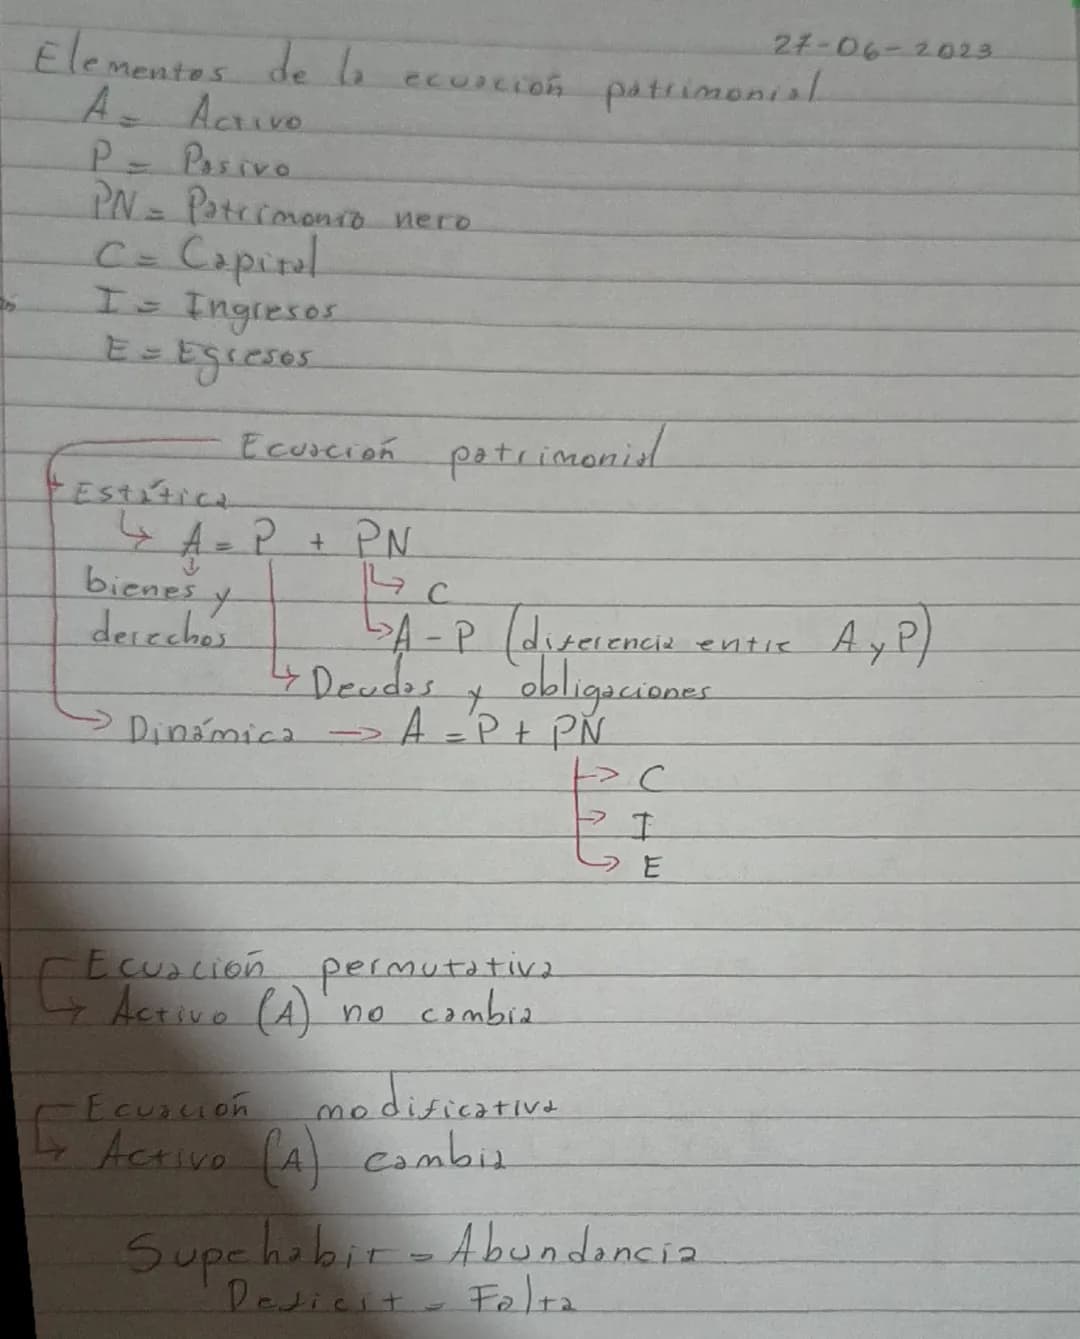 27-06-2023
Elementos de la ecuación patrimonial
A = Activo
P = Pasivo
PN = Patrimonio neto
C = Capital
I = Ingresos
E = Egresos
Ecuación patrimonial
Estática
↳ A = P + PN
bienes y ↳ C
derechos ↳ A - P (diferencia entre A y P)
↳ Deudas y obligaciones
→ Dinámica → A = P + PN
→ C
→ I
→ E
Ecuación permutativa
↳ Activo (A) no cambia
Ecuación modificativa
↳ Activo (A) cambia
Supehabit = Abundancia
Deficit = Falta